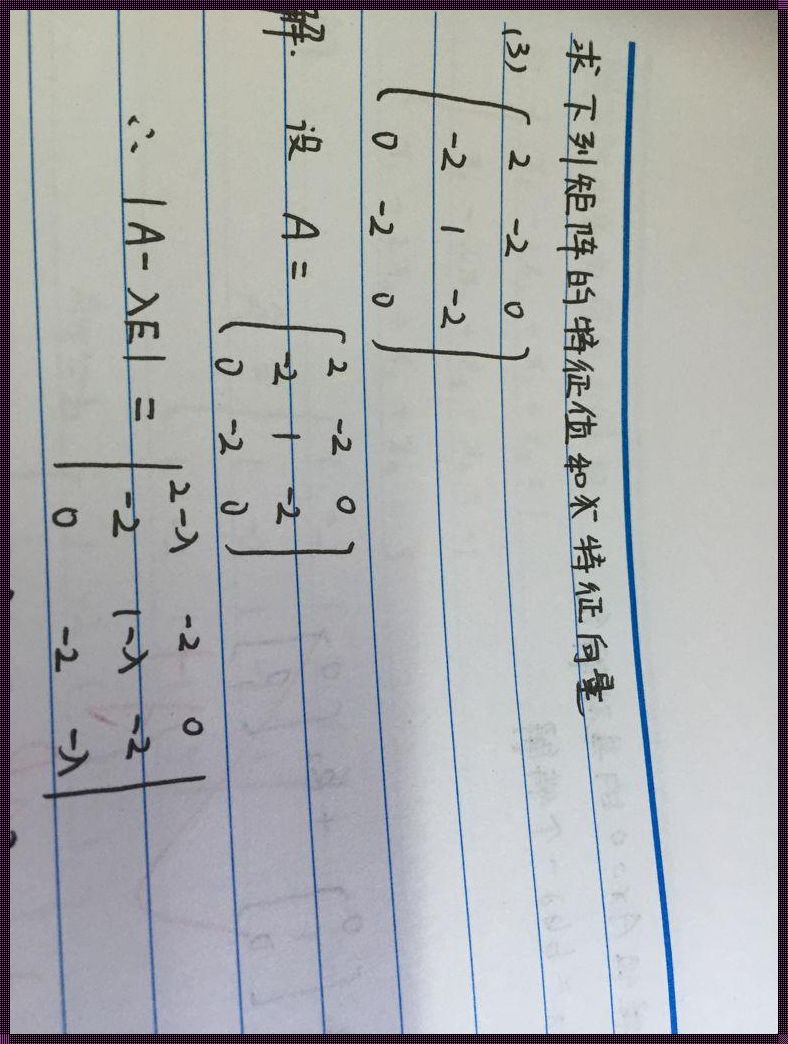 求下列矩阵的特征值和特征向量
(3) ( 2 -2 0
-2 1 -2
0 -2 0 )
解. 设 A = ( 2 -2 0
-2 1 -2
0 -2 0 )
∴ |A-λE| = | 2-λ -2 0
-2 1-λ -2
0 -2 -λ |